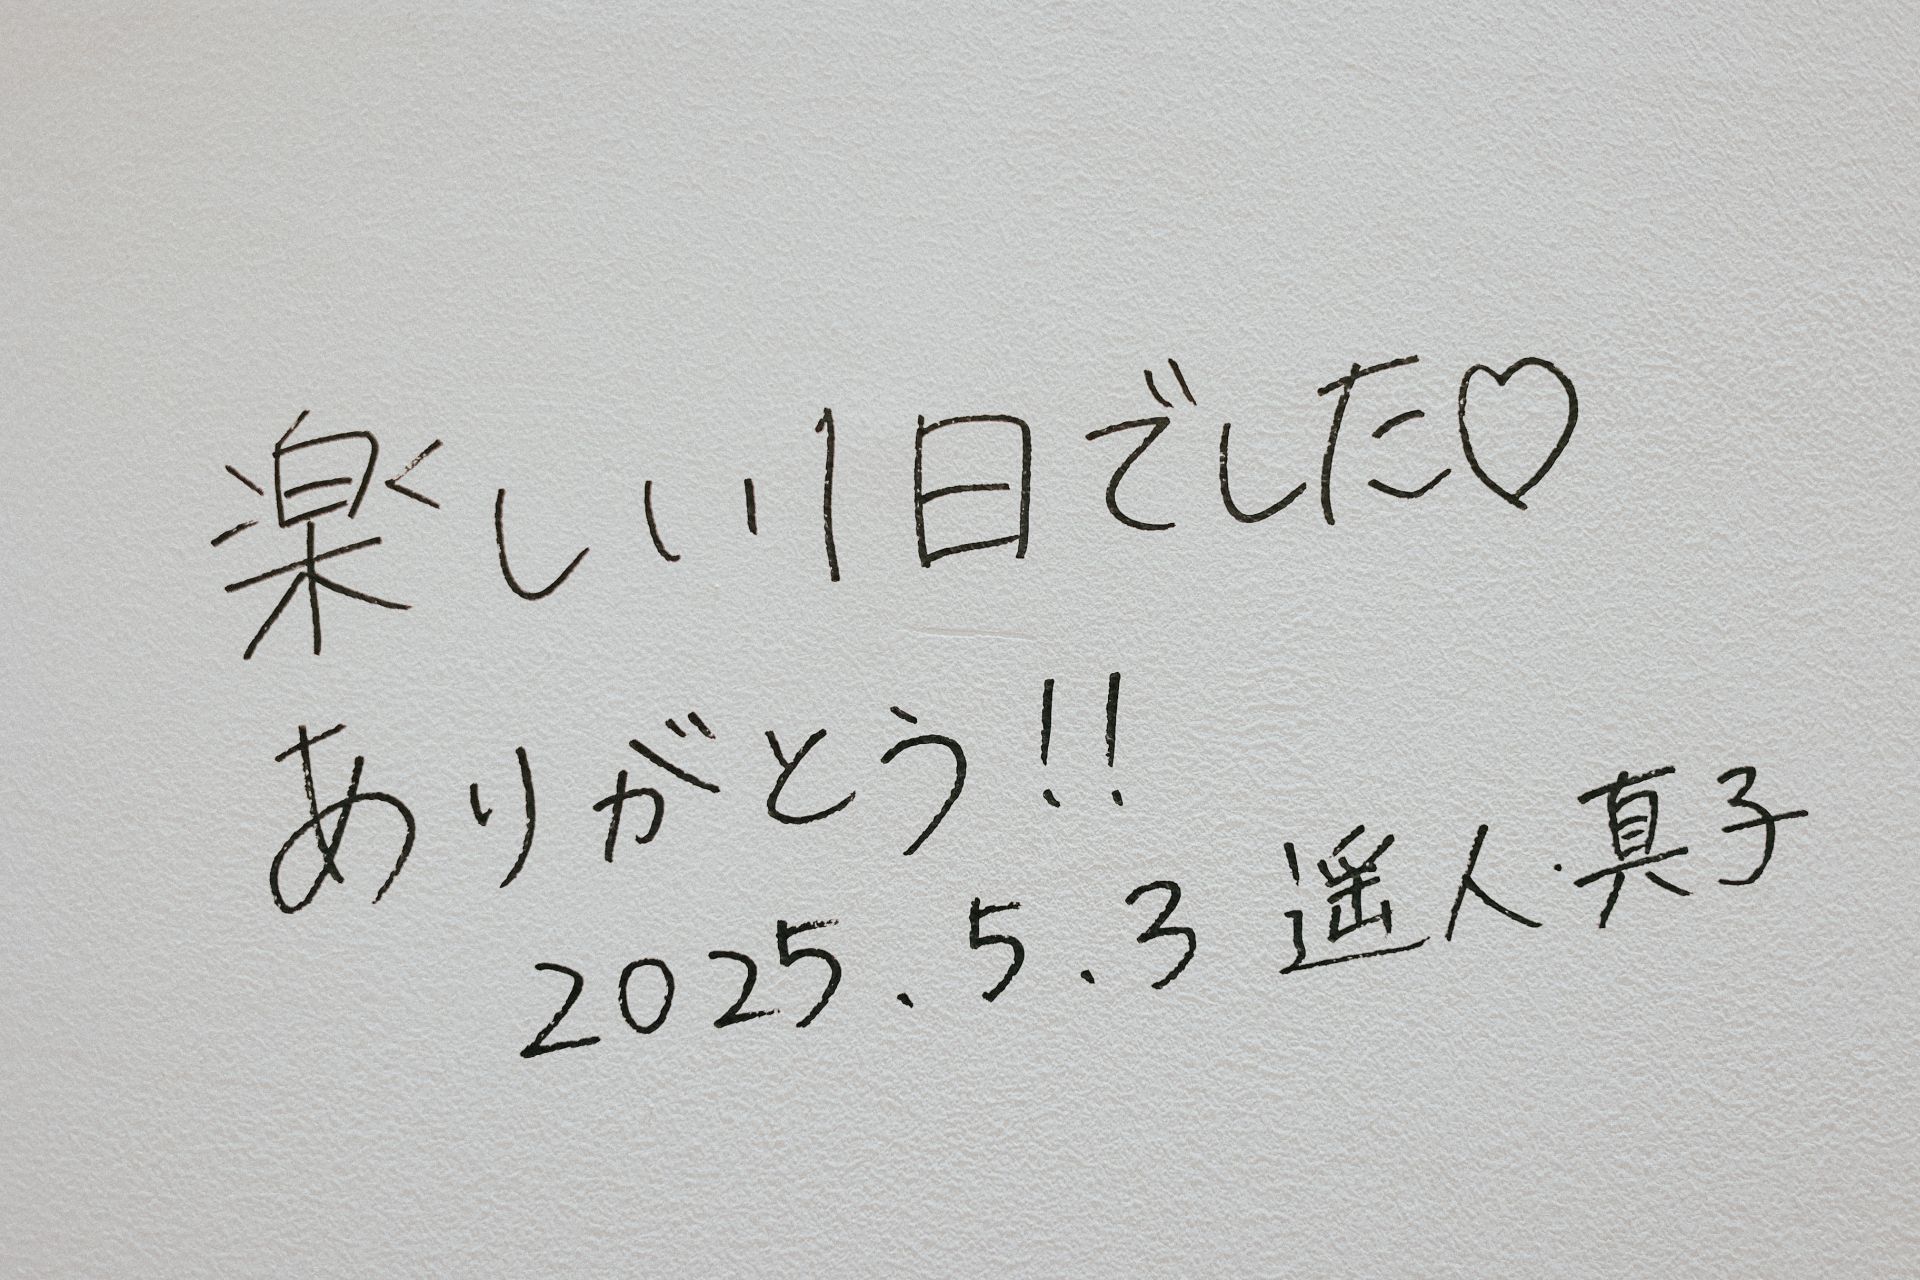 楽しい1日でした♡
ありがとう!!
2025.5.3 遥人・真子